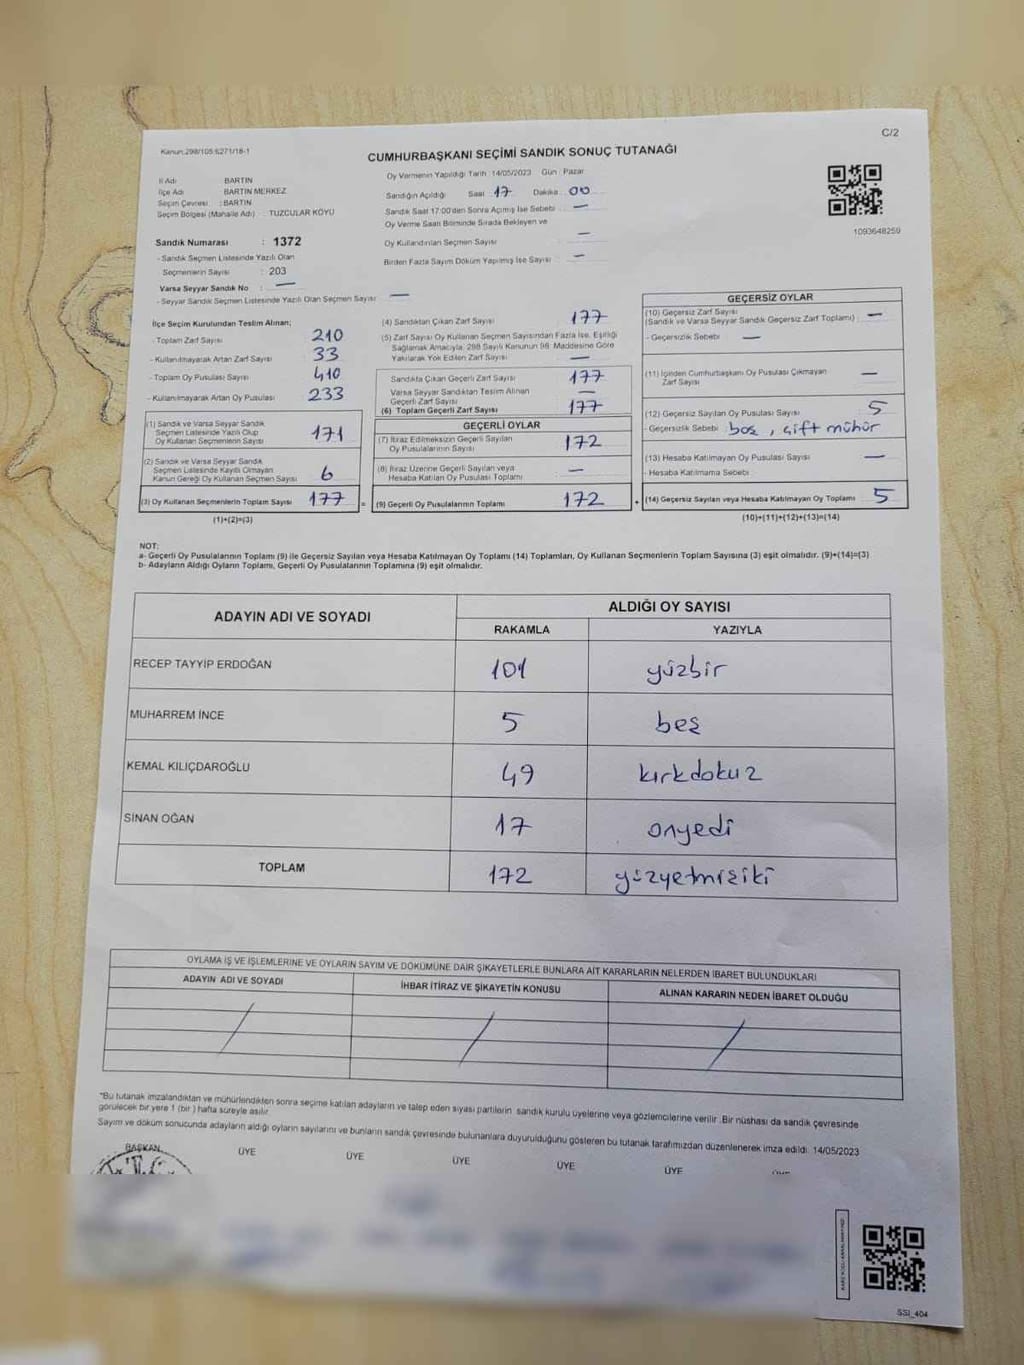 C/2
Kanun:298/105:6271/18-1
CUMHURBAŞKANI SEÇİMİ SANDIK SONUÇ TUTANAĞI
İl Adı BARTIN
İlçe Adı BARTIN MERKEZ
Seçim Çevresi : BARTIN
Seçim Bölgesi (Mahalle Adı) TUZCULAR KÖYÜ
Sandık Numarası : 1372
- Sandık Seçmen Listesinde Yazılı Olan
Seçmenlerin Sayısı : 203
Varsa Seyyar Sandık No : —
- Seyyar Sandık Seçmen Listesinde Yazılı Olan Seçmen Sayısı —
Oy Vermenin Yapıldığı Tarih :14/05/2023 Gün : Pazar
Sandığın Açıldığı Saat 17 Dakika 00
Sandık Saat 17:00'den Sonra Açılmış İse Sebebi —
Oy Verme Saati Bitiminde Sırada Bekleyen ve
Oy Kullandırılan Seçmen Sayısı —
Birden Fazla Sayım Döküm Yapılmış İse Sayısı —
1093648259
İlçe Seçim Kurulundan Teslim Alınan;
- Toplam Zarf Sayısı 210
- Kullanılmayarak Artan Zarf Sayısı 33
- Toplam Oy Pusulası Sayısı 410
- Kullanılmayarak Artan Oy Pusulası 233
(1) Sandık ve Varsa Seyyar Sandık
Seçmen Listesinde Yazılı Olup
Oy Kullanan Seçmenlerin Sayısı 171
(2) Sandık ve Varsa Seyyar Sandık
Seçmen Listesinde Kayıtlı Olmayan
Kanun Gereği Oy Kullanan Seçmen Sayısı 6
(3) Oy Kullanan Seçmenlerin Toplam Sayısı 177
(1)+(2)=(3)
(4) Sandıktan Çıkan Zarf Sayısı 177
(5) Zarf Sayısı Oy Kullanan Seçmen Sayısından Fazla İse, Eşitliği
Sağlamak Amacıyla, 298 Sayılı Kanunun 98. Maddesine Göre
Yakılarak Yok Edilen Zarf Sayısı —
Sandıkta Çıkan Geçerli Zarf Sayısı 177
Varsa Seyyar Sandıktan Teslim Alınan
Geçerli Zarf Sayısı —
(6) Toplam Geçerli Zarf Sayısı 177
GEÇERLİ OYLAR
(7) İtiraz Edilmeksizin Geçerli Sayılan
Oy Pusulalarının Sayısı 172
(8) İtiraz Üzerine Geçerli Sayılan veya
Hesaba Katılan Oy Pusulası Toplamı —
= (9) Geçerli Oy Pusulalarının Toplamı 172 +
GEÇERSİZ OYLAR
(10) Geçersiz Zarf Sayısı
(Sandık ve Varsa Seyyar Sandık Geçersiz Zarf Toplamı) —
- Geçersizlik Sebebi —
(11) İçinden Cumhurbaşkanı Oy Pusulası Çıkmayan
Zarf Sayısı —
(12) Geçersiz Sayılan Oy Pusulası Sayısı 5
- Geçersizlik Sebebi : boş , çift mühür
(13) Hesaba Katılmayan Oy Pusulası Sayısı —
- Hesaba Katılmama Sebebi
(14) Geçersiz Sayılan veya Hesaba Katılmayan Oy Toplamı 5
(10)+(11)+(12)+(13)=(14)
NOT:
a- Geçerli Oy Pusulalarının Toplamı (9) ile Geçersiz Sayılan veya Hesaba Katılmayan Oy Toplamı (14) Toplamları, Oy Kullanan Seçmenlerin Toplam Sayısına (3) eşit olmalıdır. (9)+(14)=(3)
b- Adayların Aldığı Oyların Toplamı, Geçerli Oy Pusulalarının Toplamına (9) eşit olmalıdır.
ADAYIN ADI VE SOYADI ALDIĞI OY SAYISI
RAKAMLA YAZIYLA
RECEP TAYYİP ERDOĞAN 101 yüzbir
MUHARREM İNCE 5 beş
KEMAL KILIÇDAROĞLU 49 kırkdokuz
SİNAN OĞAN 17 onyedi
TOPLAM 172 yüzyetmişiki
OYLAMA İŞ VE İŞLEMLERİNE VE OYLARIN SAYIM VE DÖKÜMÜNE DAİR ŞİKAYETLERLE BUNLARA AİT KARARLARIN NELERDEN İBARET BULUNDUKLARI
ADAYIN ADI VE SOYADI İHBAR İTİRAZ VE ŞİKAYETİN KONUSU ALINAN KARARIN NEDEN İBARET OLDUĞU
/ / /
*Bu tutanak imzalandıktan ve mühürlendikten sonra seçime katılan adayların ve talep eden siyasi partilerin sandık kurulu üyelerine veya gözlemcilerine verilir .Bir nüshası da sandık çevresinde
görülecek bir yere 1 (bir ) hafta süreyle asılır.
Sayım ve döküm sonucunda adayların aldığı oyların sayılarını ve bunların sandık çevresinde bulunanlara duyurulduğunu gösteren bu tutanak tarafımızdan düzenlenerek imza edildi. 14/05/2023
BAŞKAN ÜYE ÜYE ÜYE ÜYE ÜYE
SSI_404